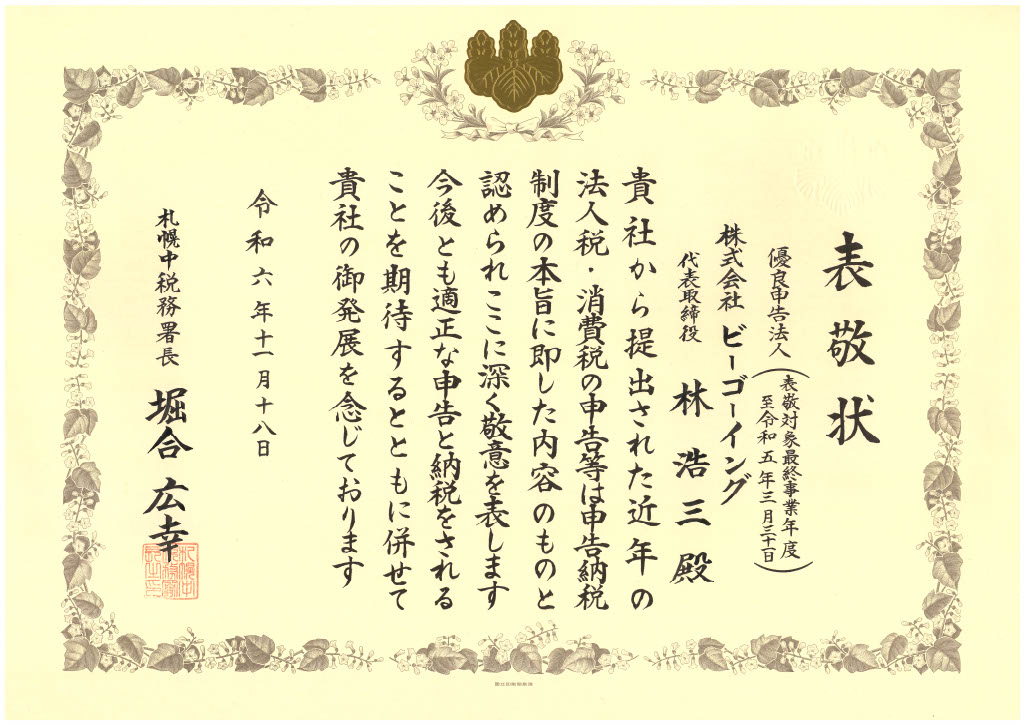 表敬状
優良申告法人
(表敬対象最終事業年度
至令和五年三月三十一日)
株式会社 ビーゴーイング
代表取締役 林浩三殿
貴社から提出された近年の
法人税・消費税の申告等は申告納税
制度の本旨に即した内容のものと
認められここに深く敬意を表します
今後とも適正な申告と納税をされる
ことを期待するとともに併せて
貴社の御発展を念じております
令和六年十一月十八日
札幌中税務署長 堀合広幸